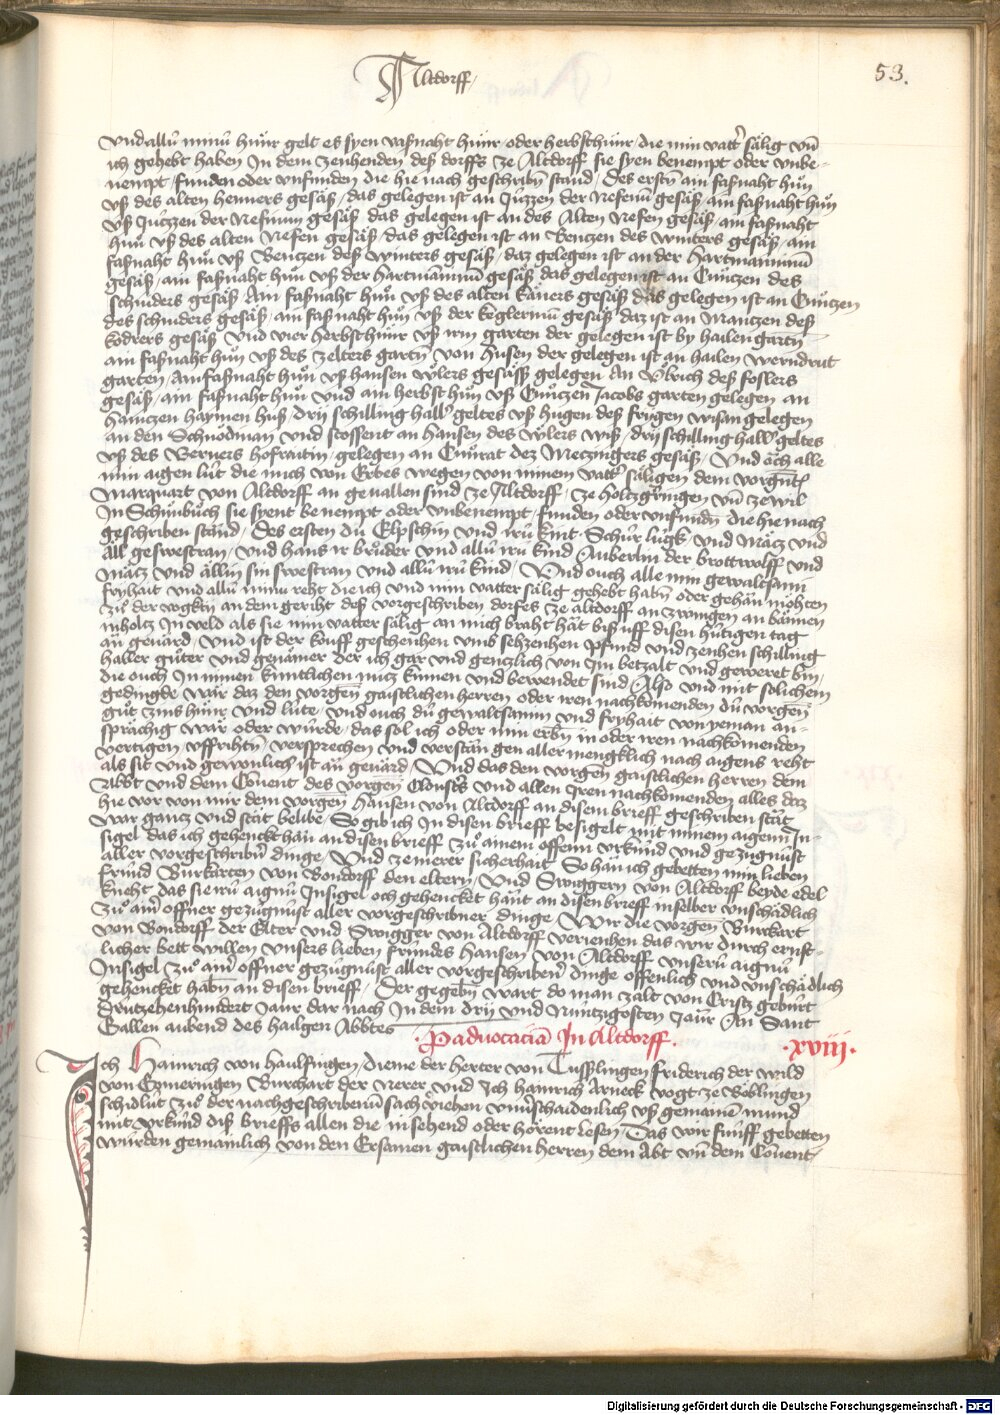 Altdorff
53.
vnd allu̍ minu̍ hu̍nr gelt es syen vasnaht hu̍nr / oder herbsthu̍nr / die min vatter sälig vn̄
ich gehebt haben In dem zenhenden deß dorffs ze Altdorff sie syen benempt oder vnbe-
nempt / funden oder vnfunden die hie nach geschriben stand / Des ersten ain faßnaht hůn
vß des alten henners gesäß / das gelegen ist an Ju̍tzen der Nefenu̍ gesäß / ain faßnaht hůn
vß Ju̍tzen der Nefinun gesäß das gelegen ist an des Alten Nefen gesäß / ain faßnaht
hůn vß des alten Nefen gesäß / das gelegen ist an Bentzen des winters gesäß / ain
faßnaht hůn vß Bentzen deß winters gesäß / daz gelegen ist an der Hartmanninun
gesäß / ain faßnaht hůn vß der Hartmaninun gesäß das gelegen ist an Cůntzen des
schniders gesäß Ain faßnaht hůn vß des alten käners gesäß das gelegen ist an Cůntzen
des schniders gesäß / ain faßnaht hůn vß der keglerinu̍ gesäß daz ist an Mantzen deß
kodrers gesäß Vnd vier herbsthu̍nr vß irm garten der gelegen ist by hailengarten
ain faßnaht hůn vß des zelters garten von Husen der gelegen ist an hailen werndrut
garten / Ain faßnaht hůn vß hansen wo̍lers gesäss gelegen An Vlrich deß foslers
gesäß / ain faßnaht hůn vnd ain herbst hůn vß Cůntzen Jacobs garten gelegen an
haintzen haymen huß / dry schilling haller geltes vß hugen deß frygen wisan gelegen
an den Schnödman vnd stossent an hansen des wölers wiß / dry schilling haller geltes
vß des Berners hofraitin / gelegen an Cůnrat dez Metzingers gesäß / Vnd ǒch alle
min aigen lu̍t die mich von Erbes wegen von minem vatter säligen dem vorgnten
Marquart von Altdorff an geuallen sind ze Altdorff / ze Holtzgeringen vn̄ ze wil
In Schu̍nbůch sie syent benempt oder vnbenempt / funden oder vnfunden die hie nach
geschriben stand / Des ersten du̍ Elpschin vnd iru̍ kint / Schur lu̍gk / vnd Mätz vnd
All geswestran / vnd hans ir brůder vnd allu̍ iru̍ kind Auberlin der brottwolff vnd
Mätz vnd ällin sin swestran vnd allu̍ iru̍ kind / Vnd ouch alle min gewaltsami
fryhait vnd allu̍ minu̍ reht die ich vnd min vatter sälig gehebt haben oder gehan möhten
zů der vogkty an dem geriht deß vorgeschriben dorfes ze altdorff an zwingen an bännen
inholtz In veld als sie min vatter sälig an mich braht hät biß vff disen hu̍tigen tag
an geuärd / Vnd ist der kouff geschenhen vmb sehzenhen Pfund vnd zenhen schilling
haller gůter vnd genämer der ich gar vnd gentzlich von Im betzalt vnd geweret bin /
die ouch In minen kuntlichen nutz kumen vnd bewendet sind Also vnd mit solichem
gedingde wär daz den vorgen gaistlichen herren oder iren nachkomenden du̍ vorgen
gůt zins hu̍nr vnd lu̍te / vnd ouch du̍ gewaltsamin vnd fryhait von yeman an-
sprächig wär oder wu̍rde / das sol ich oder min erben in oder iren nachkomenden
vertigen / vffrihten / versprechen vnd verstän gen aller mengklich nach aigens reht
als sit vnd gewonlich ist an geuärd / Vnd das den vorgen gaistlichen herren dem
Abbt vnd dem Conuent des vorgen Closters vnd allen Iren nachkomenden alles daz
hie vor von mir dem vorgen Hansen von Altdorff an disem brieff geschriben stät
war gantz vnd stät belibe / So gib ich In disen brieff besigelt mit minem aigenin In-
sigel das ich gehenckt han an disen brieff zů ainem offenn vrku̍nd vnd gezu̍gnu̍st
aller vorgeschriben dinge / Vnd ze merer sicherhait So hän ich gebetten min lieben
fru̍nd Burkarten von Bondorff den eltern / Vnd Swiggern von Altdorff beyde edel
kneht das sie iru̍ aignu̍ Insigel och gehencket hant an disen brieff in selber vnschädlich
zů ainer offner gezu̍gnu̍st aller vorgeschribner dinge / Wir die vorgen Burckart
von Bondorff der Elter vnd Swigger von Altdorff veriehen das wir durch ernst-
licher bett willen vnsers lieben fru̍ndes Hansen von Altdorff vnseru̍ aignu̍
Insigel zů ainer offner gezu̍gnu̍st aller vorgeschribener dinge offenlich vnd vnschädlich
gehencket haben an disen brieff / Der gegeben wart do man zalt von Cristz gebu̍rt
drutzehenhundert Jaur dar nach In dem dry vnd Nu̍ntzigosten Jaur An Sant
Gallen aubend des hailgen Abbtes
·Paduocacia In Altdorff.
·xviij·
Ich Hainrich von Haulfingen / Dieme der herter von Tusslingen friderich der wild
von Ezmeringen Burchart der Nerer / vnd Ich hainrich Arneck vogt ze Böblingen
schidlu̍t zů der nachgeschribenn sach veriehen vnuerschaidenlich vß gemainem mund
mit vrku̍nd diß brieffs allen die in sehend oder hörent lesen Das wir fu̍nff gebetten
wurden gemainlich von den Ersamen gaistlichen herren dem Abt vn̄ dem Conuent
Digitalisierung gefördert durch die Deutsche Forschungsgemeinschaft - DFG